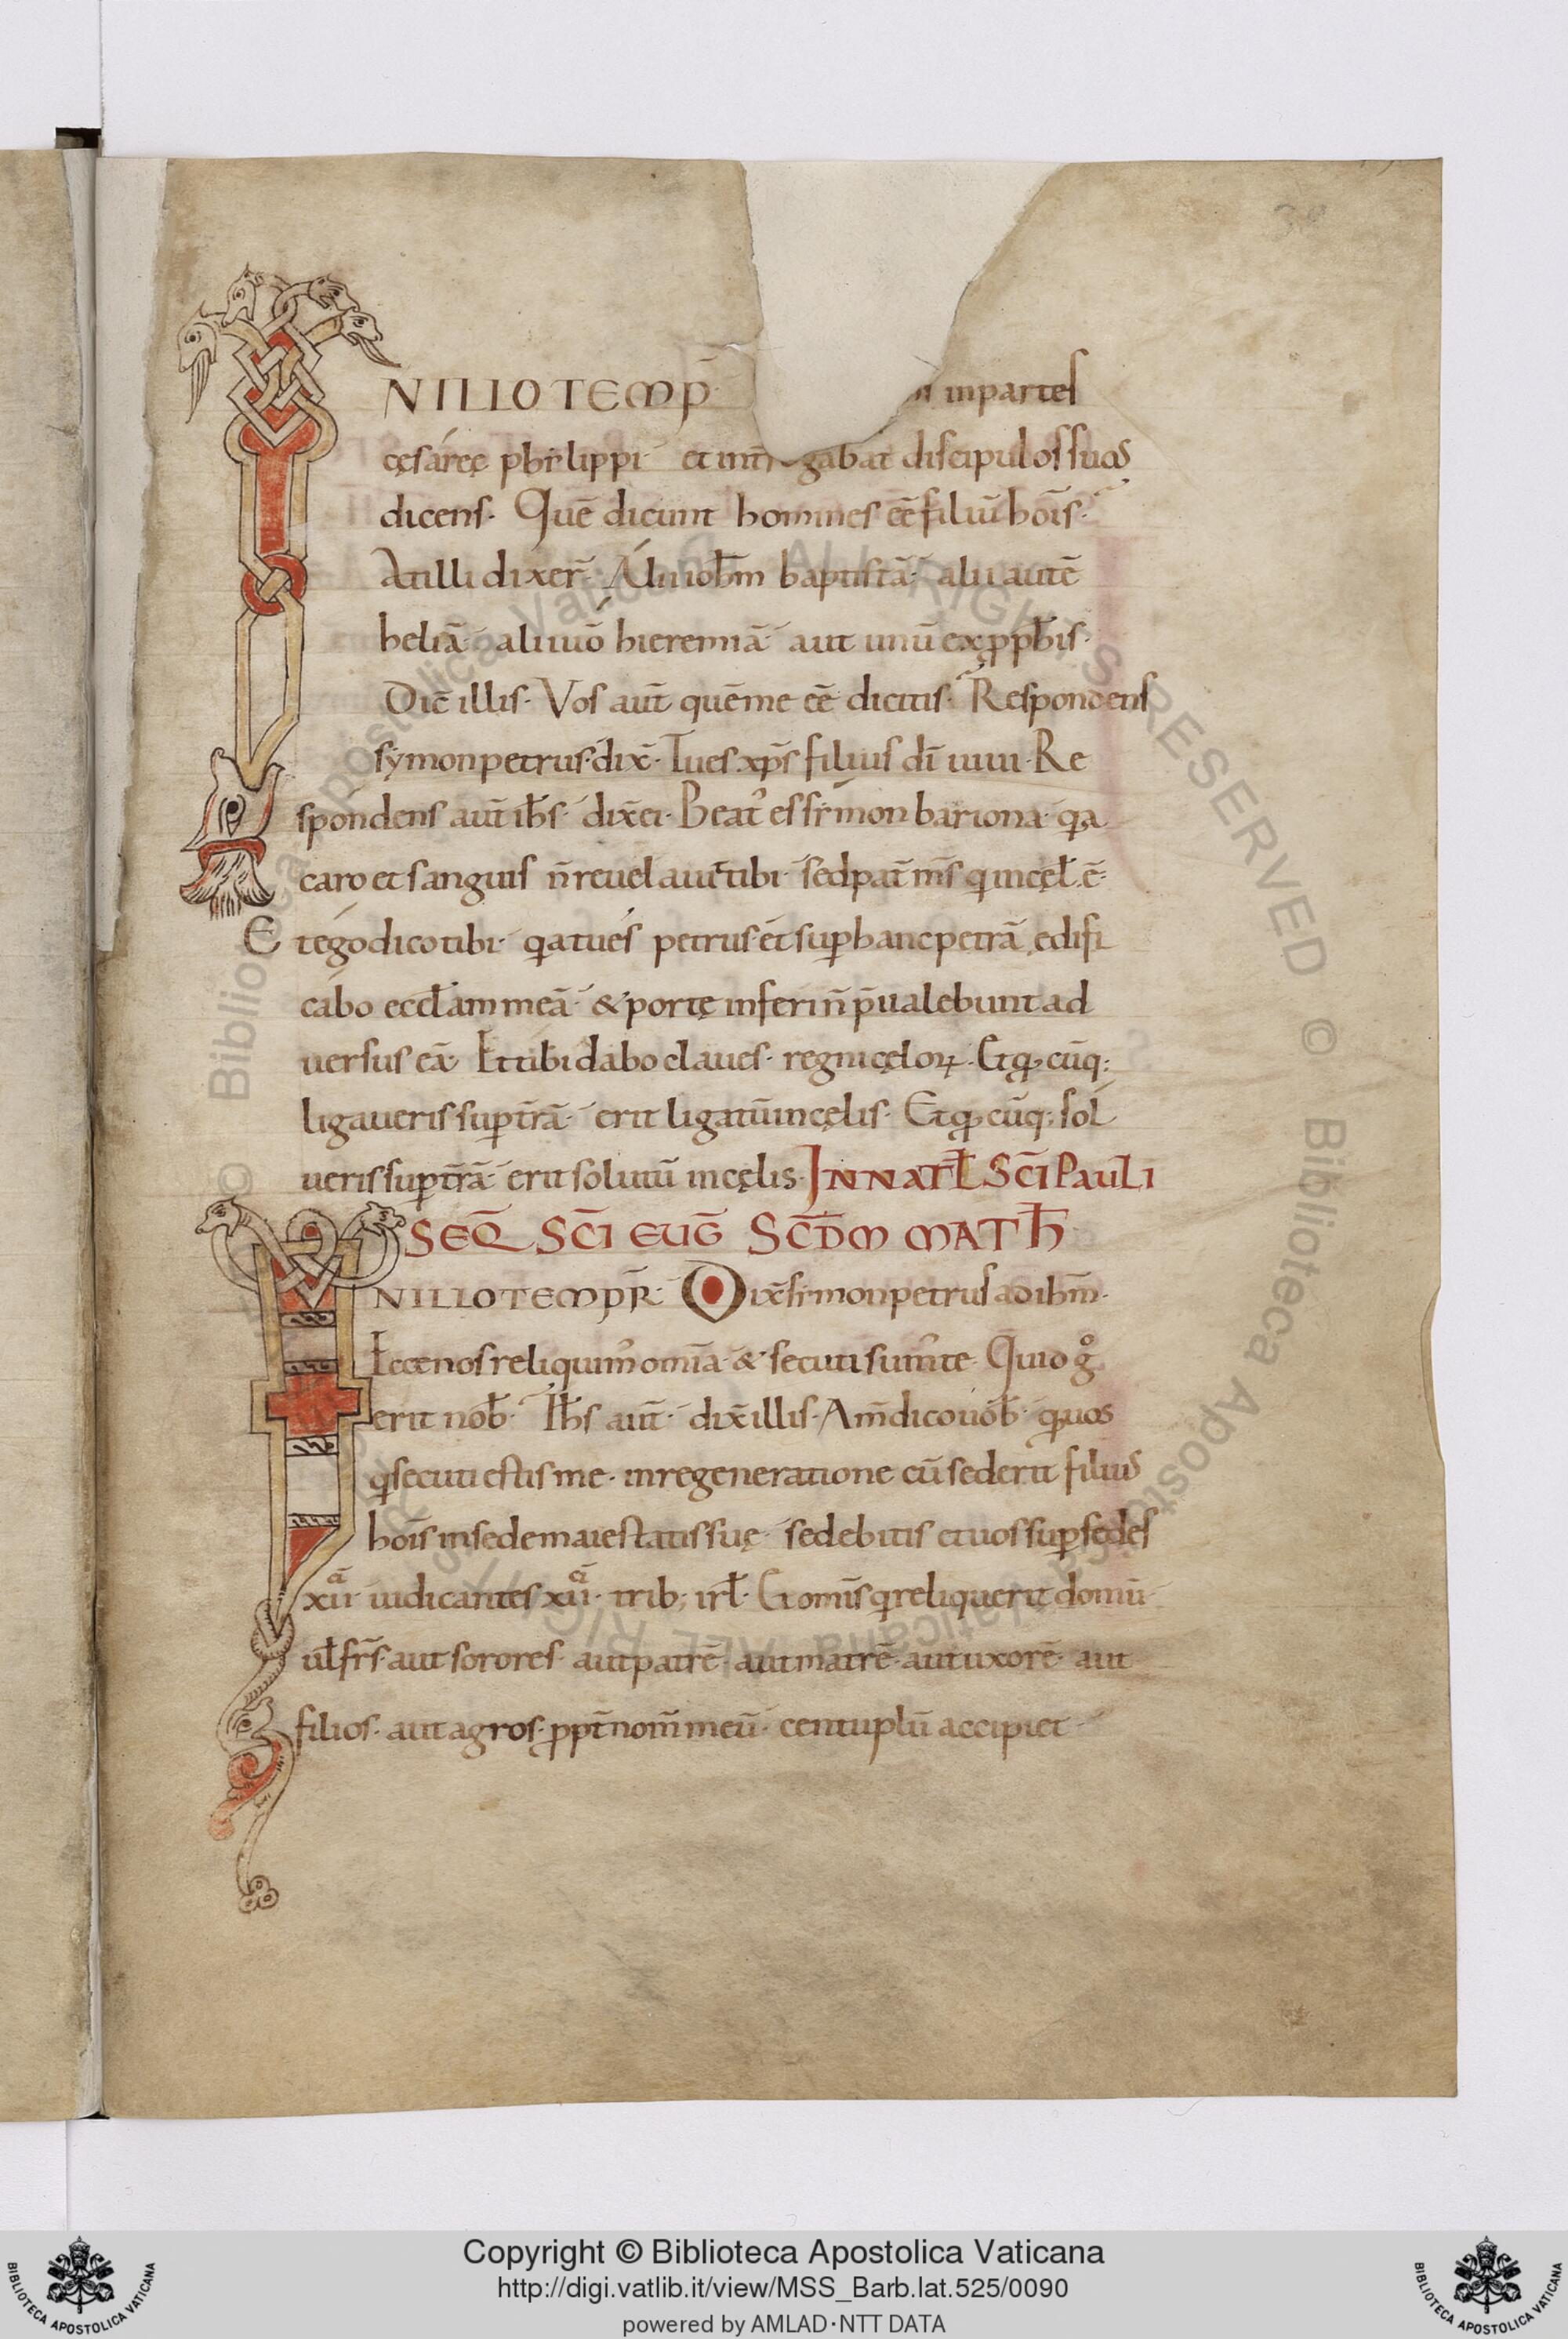 INILLO TEMPR̄ inpartes
cęsáreę philippi et int̄ gabat discipulos suos
dicens· Quē dicunt homines eē filiū hoīs·
Atilli dixer̄· Alii ioh̄m baptistā· alii autē
heliā· alii uō hieremiā aut unū ex ꝓph̄is·
Dic̄ illis· Vos aut̄ quē me eē dicitis· Respondens
symon petrus· dix̄· Tu es xp̄s filius dī uiui· Re
spondens aut̄ ih̄s· dix̄ ei· Beatꝰ es simon bariona· qa
caro et sanguis n̄ reuelauit tibi· sed pat̄ m̄s qi in cęl̄ ē·
Et ego dico tibi· qa tu es petrus· et suꝑ hanc petrā ędifi
cabo eccl̄am meā· & portę inferi n̄ p̄ualebunt ad
uersus eā· Et tibi dabo claues· regni cęloꝝ· Et qđ cūq;
ligaueris suꝑ t̄rā· erit ligatū in cęlis· Et qđ cūq; sol
ueris suꝑ t̄rā· erit solutū in cęlis· IN NATL̄ SC̄I PAULI
SEQ̄ SC̄I EUḠ SC̄DM MATH̄
INILLO TEMPR̄· Dix̄ simon petrus ad ih̄m·
Ecce nos reliquimꝰ om̄ia & secuti sumꝰ te· Quid gͦ
erit nob̄· Ih̄s aut̄· dix̄ illis· Am̄ dico uob̄· quod uos
qi secuti estis me· in regeneratione cū sederit filius
hoīs in sede maiestatis suę· sedebitis et uos suꝑ sedes
xii iudicantes xii· trib; isrl̄· Et om̄s qi reliquerit domū·
ul̄ fr̄s· aut sorores· aut patrē aut matrē· aut uxorē· aut
filios· aut agros· ꝓpt̄ nom̄ meū· centuplū accipiet·
Copyright © Biblioteca Apostolica Vaticana
http://digi.vatlib.it/view/MSS_Barb.lat.525/0090
powered by AMLAD·NTT DATA
BIBLIOTECA APOSTOLICA VATICANA
BIBLIOTECA APOSTOLICA VATICANA
© Biblioteca Apostolica Vaticana ALL RIGHTS RESERVED
© Biblioteca Apostolica Vaticana ALL RIGHTS